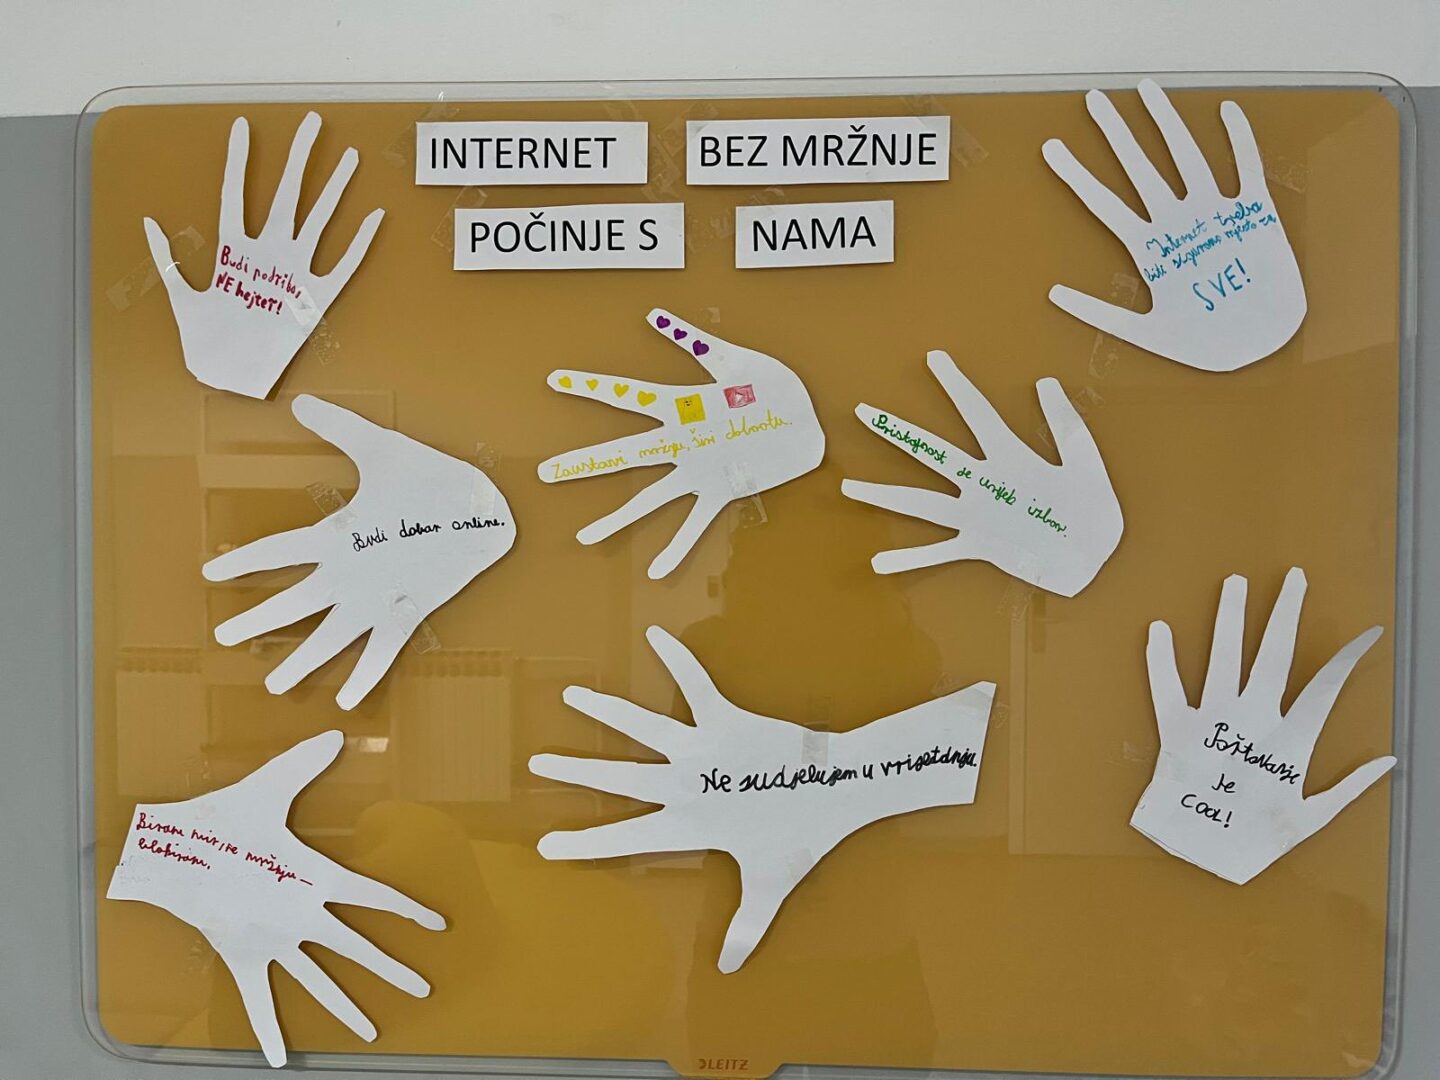 INTERNET BEZ MRŽNJE
POČINJE S NAMA
Budi podrška,
NE hejter!
Internet treba
biti sigurno mjesto za
SVE!
Zaustavi mržnju, širi dobrotu.
Pristojnost je uvijek izbor.
Budi dobar online.
Ne sudjelujem u vrijeđanju.
Poštovanje
je
COOL!
Biram mir, ne mržnju –
blokiram.
LEITZ